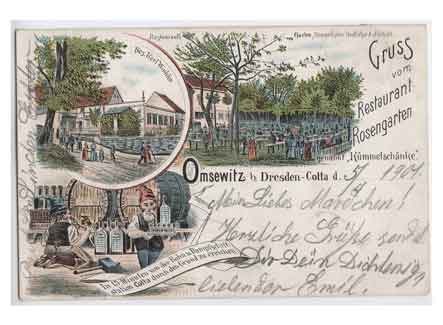 Restaurant
Gruss
vom
Restaurant
Rosengarten
genannt "Kümmelschänke"
Omsewitz b. Dresden-Cotta d. 5/ 1901
Mein Liebes Mädchen!
Herzliche Grüße sendet
Dir Dein Dich
liebender Emil.
In 15 Minuten von der Bahn u. Dampfschiff-
station Cotta durch den Grund zu erreichen.